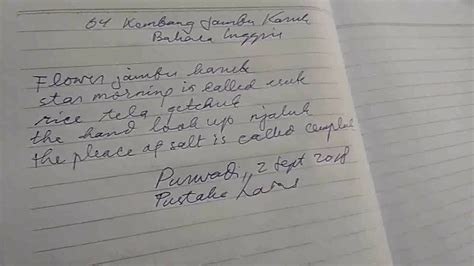 64 Kembang Jambu Karuk
Bahasa Inggris
Flower jambu karuk
star morning is called esuk
rice tela getchuk
the hand look up njaluk
the pleace of salt is called cempluk
Purwadi, 2 Sept 2018
Pustaka